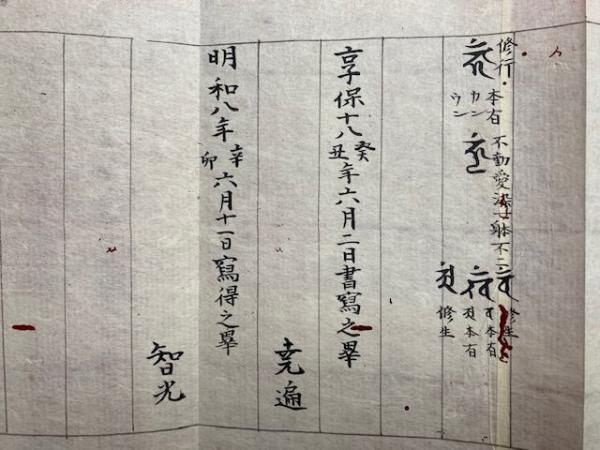 修行
本有
カン
ウン
不動愛染
不二
修生
本有
本有
修生
享保十八癸丑年六月二日書寫之畢
尭遍
明和八年辛卯六月十一日寫得之畢
智光